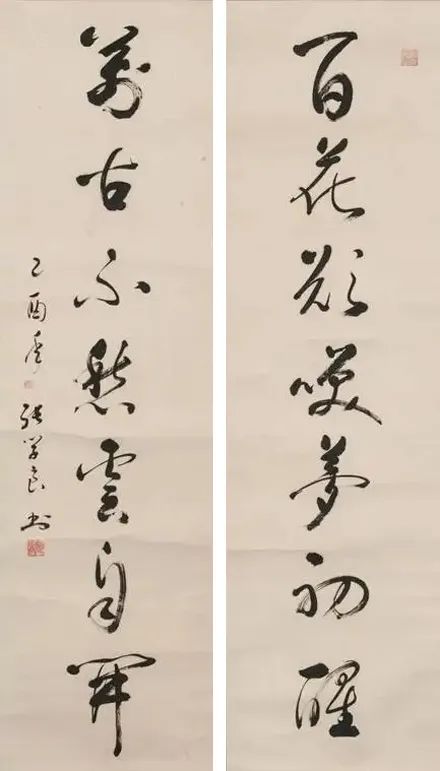 百花欲咲夢初醒
萬古不愁雲自開
乙酉年 張學良書